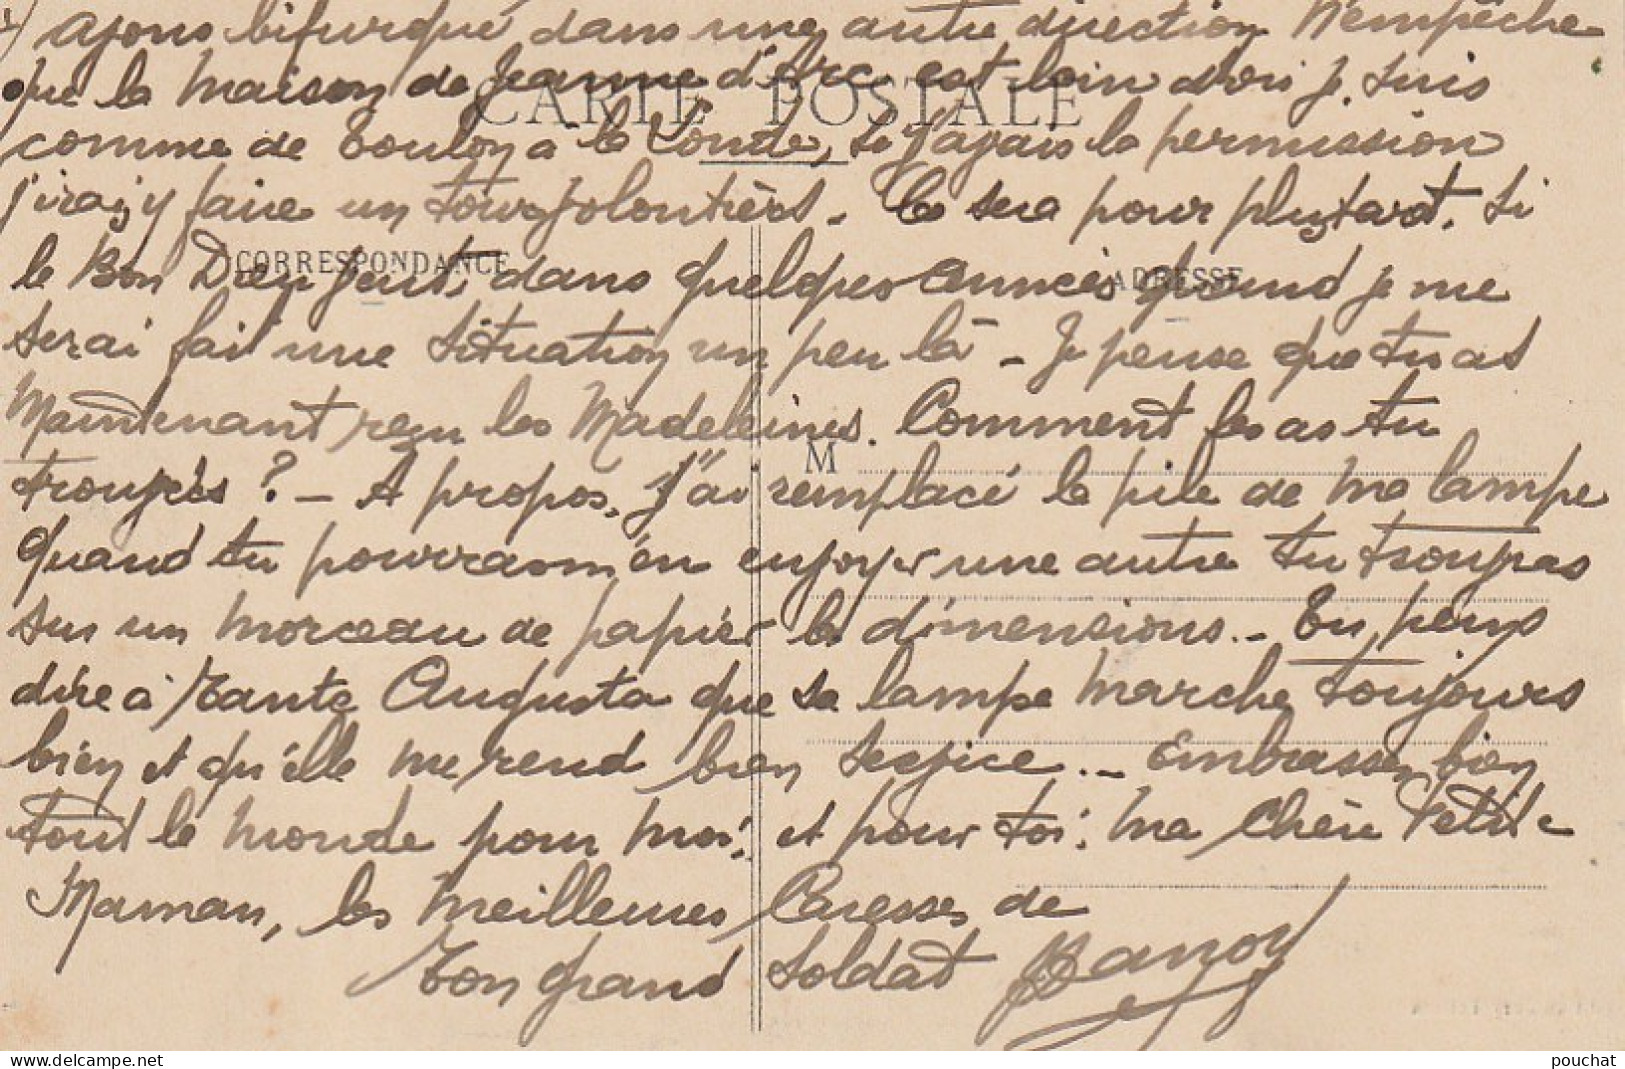 ayons bifurqué dans une autre direction N'empêche
que la maison de Jeanne d'Arc est loin d'ici je suis
CARTE POSTALE
comme de Toulon à la Londe, si j'avais la permission
j'irais y faire un tour volontiers. Ce sera pour plus tard. Si
CORRESPONDANCE
ADRESSE
le Bon Dieu veut, dans quelques années quand je me
serai fait une situation un peu là - Je pense que tu as
Maintenant reçu les Madeleines. Comment les as tu
M
trouvées ? - A propos, j'ai remplacé la pile de ma lampe
quand tu pourras m'en envoyer une autre tu trouveras
sur un morceau de papier les dimensions. - Tu peux
dire à Tante Augusta que sa lampe marche toujours
bien et qu'elle me rend bien service. - Embrasse bien
tout le monde pour moi, et pour toi, ma chère Petite
Maman, les meilleures Caresses de
Ton grand Soldat
pouchat
www.delcampe.net